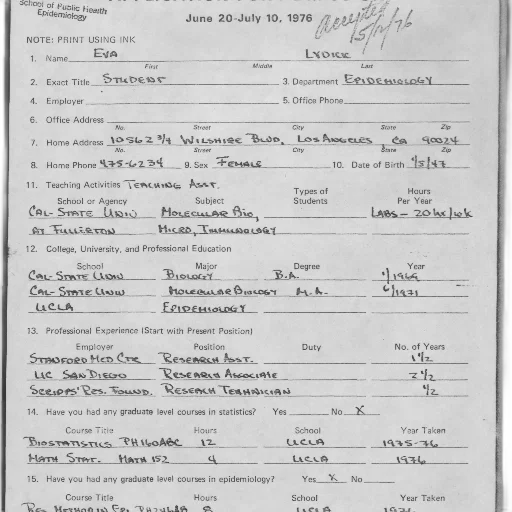 School of Public Health
Epidemiology
June 20-July 10, 1976
Accepted
5/12/76
NOTE: PRINT USING INK
1. Name EVA LYDICK
First Middle Last
2. Exact Title STUDENT 3. Department EPIDEMIOLOGY
4. Employer 5. Office Phone
6. Office Address
No. Street City State Zip
7. Home Address 10562 3/4 WILSHIRE BLVD. LOS ANGELES CA 90024
No. Street City State Zip
8. Home Phone 475-6234 9. Sex FEMALE 10. Date of Birth 4/5/47
11. Teaching Activities TEACHING ASST.
School or Agency Subject Types of Students Hours Per Year
CAL-STATE UNIV MOLECULAR BIO, LABS - 20 hr/wk
AT FULLERTON MICRO, IMMUNOLOGY
12. College, University, and Professional Education
School Major Degree Year
CAL-STATE UNIV BIOLOGY B.A. 1/1969
CAL-STATE UNIV MOLECULAR BIOLOGY M.A. 6/1971
UCLA EPIDEMIOLOGY
13. Professional Experience (Start with Present Position)
Employer Position Duty No. of Years
STANFORD MED CTR RESEARCH ASST. 1 1/2
UC SAN DIEGO RESEARCH ASSOCIATE 2 1/2
SCRIPPS' RES. FOUND. RESEACH TECHNICIAN 1/2
14. Have you had any graduate level courses in statistics? Yes No X
Course Title Hours School Year Taken
BIOSTATISTICS PH160ABC 12 UCLA 1975-76
MATH STAT. MATH 152 4 UCLA 1976
15. Have you had any graduate level courses in epidemiology? Yes X No
Course Title Hours School Year Taken
RES. METHOD IN EPI. 8 UCLA